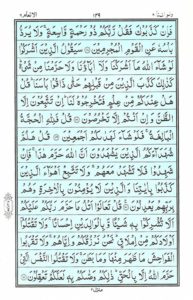 ولواننا ٨ ١٣٩ الانعام ٦
فَاِنْ كَذَّبُوْكَ فَقُلْ رَّبُّكُمْ ذُوْ رَحْمَةٍ وَّاسِعَةٍ ۚ وَلَا يُرَدُّ
بَاْسُهٗ عَنِ الْقَوْمِ الْمُجْرِمِيْنَ ۝ سَيَقُوْلُ الَّذِيْنَ اَشْرَكُوْا
لَوْ شَآءَ اللّٰهُ مَآ اَشْرَكْنَا وَلَآ اٰبَآؤُنَا وَلَا حَرَّمْنَا مِنْ شَيْءٍ ؕ
كَذٰلِكَ كَذَّبَ الَّذِيْنَ مِنْ قَبْلِهِمْ حَتّٰى ذَاقُوْا بَاْسَنَا ؕ قُلْ
هَلْ عِنْدَكُمْ مِّنْ عِلْمٍ فَتُخْرِجُوْهُ لَنَا ؕ اِنْ تَتَّبِعُوْنَ اِلَّا
الظَّنَّ وَاِنْ اَنْتُمْ اِلَّا تَخْرُصُوْنَ ۝ قُلْ فَلِلّٰهِ الْحُجَّةُ
الْبَالِغَةُ ۚ فَلَوْ شَآءَ لَهَدٰىكُمْ اَجْمَعِيْنَ ۝ قُلْ هَلُمَّ
شُهَدَآءَكُمُ الَّذِيْنَ يَشْهَدُوْنَ اَنَّ اللّٰهَ حَرَّمَ هٰذَا ۚ فَاِنْ
شَهِدُوْا فَلَا تَشْهَدْ مَعَهُمْ ۚ وَلَا تَتَّبِعْ اَهْوَآءَ الَّذِيْنَ
كَذَّبُوْا بِاٰيٰتِنَا وَالَّذِيْنَ لَا يُؤْمِنُوْنَ بِالْاٰخِرَةِ وَهُمْ
بِرَبِّهِمْ يَعْدِلُوْنَ ۝ قُلْ تَعَالَوْا اَتْلُ مَا حَرَّمَ رَبُّكُمْ عَلَيْكُمْ
اَلَّا تُشْرِكُوْا بِهٖ شَيْـًٔا وَّبِالْوَالِدَيْنِ اِحْسَانًا ۚ وَلَا تَقْتُلُوْٓا
اَوْلَادَكُمْ مِّنْ اِمْلَاقٍ ؕ نَحْنُ نَرْزُقُكُمْ وَاِيَّاهُمْ ۚ وَلَا تَقْرَبُوا
الْفَوَاحِشَ مَا ظَهَرَ مِنْهَا وَمَا بَطَنَ ۚ وَلَا تَقْتُلُوا النَّفْسَ الَّتِيْ
حَرَّمَ اللّٰهُ اِلَّا بِالْحَقِّ ؕ ذٰلِكُمْ وَصّٰىكُمْ بِهٖ لَعَلَّكُمْ تَعْقِلُوْنَ ۝
منزل ٢